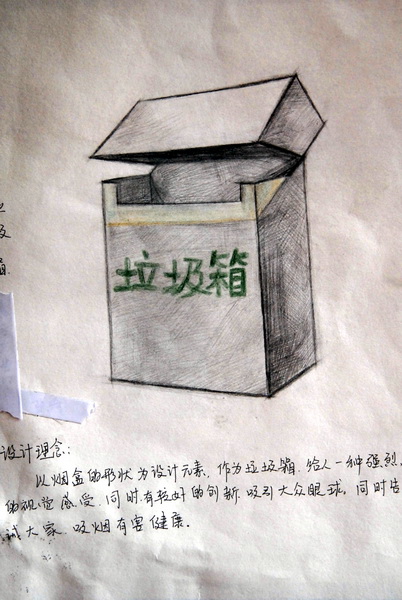 垃圾箱
设计理念:
以烟盒的形状为设计元素.作为垃圾箱.给人一种强烈
的视觉感受.同时有较好的创新.吸引大众眼球.同时告
诫大家.吸烟有害健康.